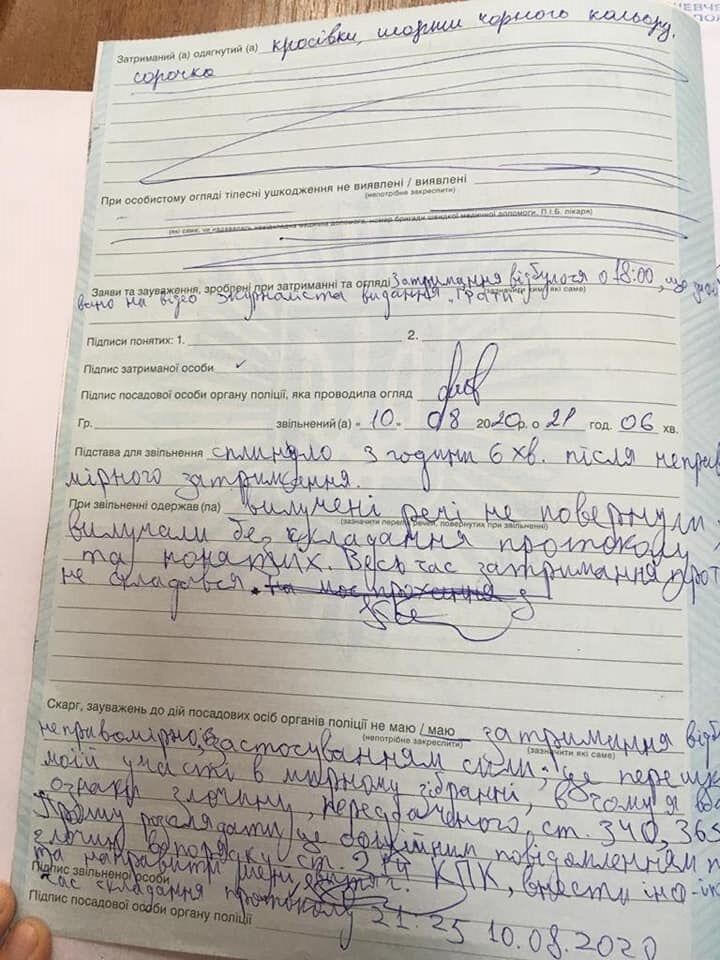 Затриманий (а) одягнутий (а) кросівки, шорти чорного кольору,
сорочка
При особистому огляді тілесні ушкодження не виявлені / виявлені
(непотрібне закреслити)
(які саме, чи надавалась невідкладна медична допомога, номер бригади швидкої медичної допомоги, П.І.Б. лікаря)
Заяви та зауваження, зроблені при затриманні та огляді Затримання відбулося о 18:00, що
(зазначити ким і які саме)
вано на відео журналіста видання "Ґрати"
Підписи понятих: 1. 2.
Підпис затриманої особи
Підпис посадової особи органу поліції, яка проводила огляд
Гр. звільнений(а) « 10 » 08 2020р. о 21 год. 06 хв.
Підстава для звільнення сплинуло 3 години 6 хв. після неправо
мірного затримання.
При звільненні одержав(ла) вилучені речі не повернули
(зазначити перелік речей, повернутих при звільненні)
вилучали без складання протоколу
та понятих. Весь час затримання прот
не складався. на моє прохання
Скарг, зауважень до дій посадових осіб органів поліції не маю / маю затримання відбу
(непотрібне закреслити) (зазначити які саме)
неправомірно, із застосуванням сили; це переш
моїй участі в мирному зібранні, в чому я вб
ознаки злочину, передбаченого ст. 340, 365
Прошу розглядати це офіційним повідомленням п
злочин в порядку ст. 214 КПК, внести
та направити мені витяг.
Підпис звільненої особи
Час складання протоколу 21:25 10.08.2020
Підпис посадової особи органу поліції